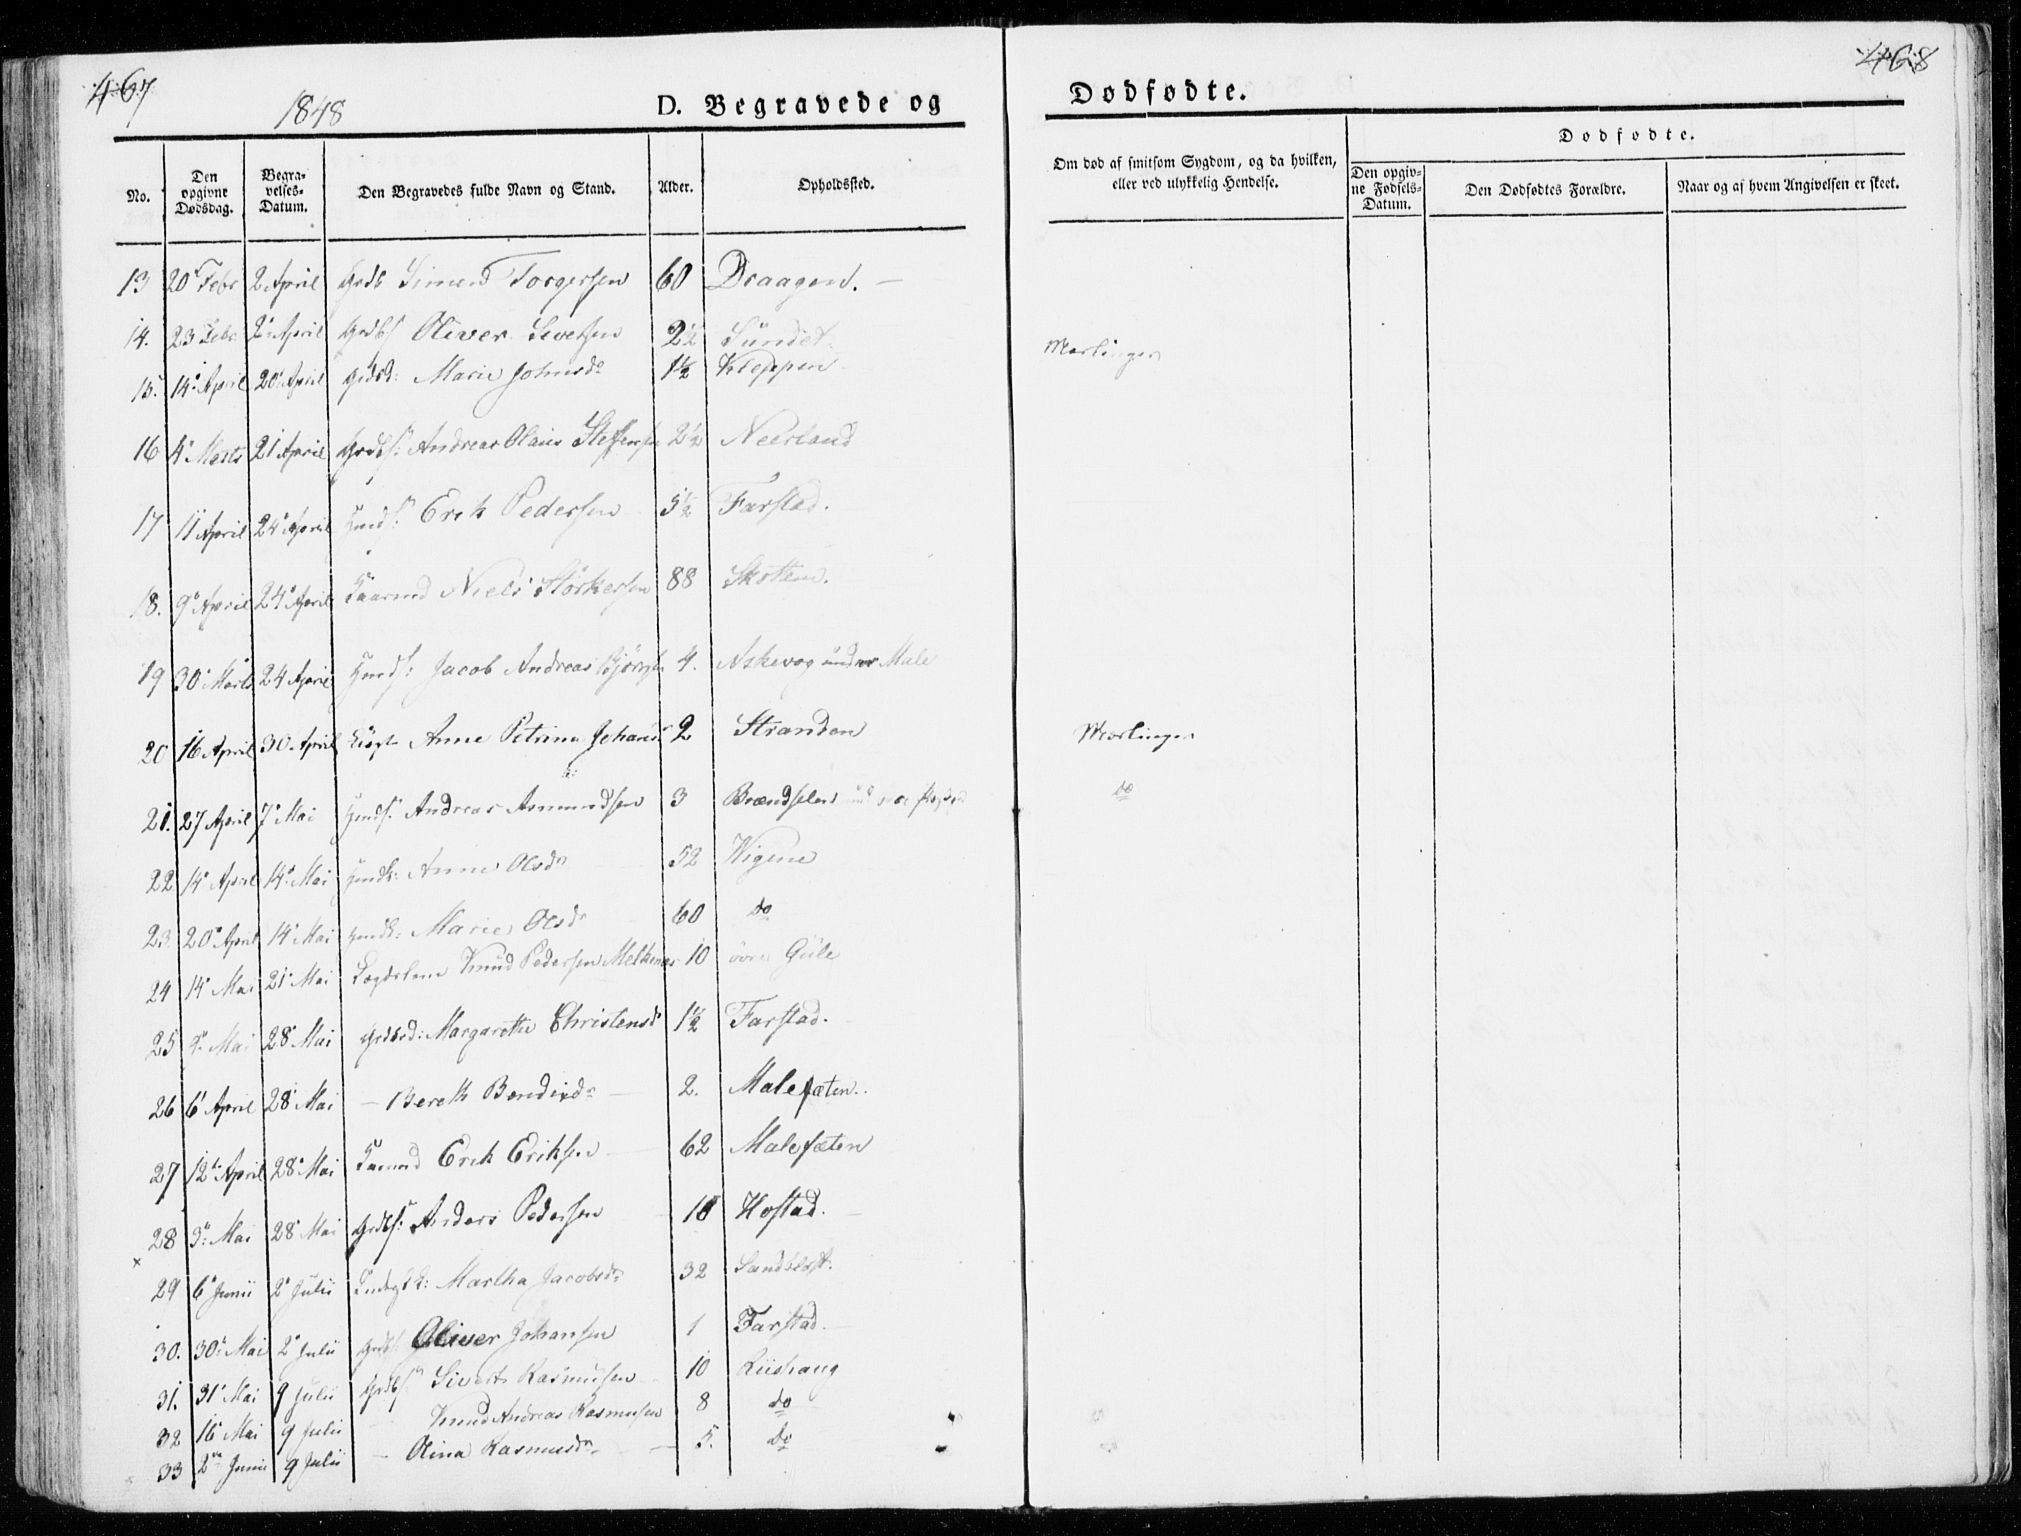 467
468
1848
D. Begravede og
Dødfødte.
No.
Den opgivne Dødsdag.
Begravelses-Datum.
Den Begravedes fulde Navn og Stand.
Alder.
Opholdssted.
Om død af smitsom Sygdom, og da hvilken, eller ved ulykkelig Hendelse.
Dødfødte.
Den opgivne Fødsels-Datum.
Den Dødfødtes Forældre.
Naar og af hvem Angivelsen er skeet.
13 20 Febr 2 April Simen Torgersen 60 Draagen. —
14. 23 Febr 2 April Oliver Sivertsen 2½ Sundet. Mæslinger
15. 14 April 20 April Marie Johnsdr 1½ Kleppen
16 4 Marts 21 April Andreas Olaus Steffensen 2½ Neerland
17 11 April 24 April Erik Pedersen 5½ Farstad.
18. 9 April 24 April Kaarmd Niels Störkersen 88 Skottem.
19 30 Marts 24 April Jacob Andreas 4. Askevog under Male
20 16 April 30 April Anne Petrina 2 Stranden Mæslinger
21. 27 April 7 Mai Andreas Asmundsen 3 Brændselen do
22 14 April 14 Mai Anne Olsdr 52 Wigene
23 20 April 14 Mai Marie Olsdr 60 do
24 14 Mai 21 Mai Lægdslem Knud Pedersen 10 övre Gule
25 Mai 28 Mai Margarethe Christensdr 1½ Farstad.
26 6 April 28 Mai — Bereth 2. Malefæten.
27 12te April 28 Mai Erik Eriksen 62 Malefæten
28 9 Mai 28 Mai Anders Pedersen Hostad.
29 6 Junii 2 Julii Martha Jacobsdr 32 Sandblöst.
30. 30 Mai 2 Julii Oliver Johansen 1 Farstad.
31. 31 Mai 9 Julii Sivert Rasmusen 10 Riishaug
32 16 Mai 9 Julii Knud Andreas Rasmusen 8 do
33 2 Junii 9 Julii — Olina Rasmusdr 5. do